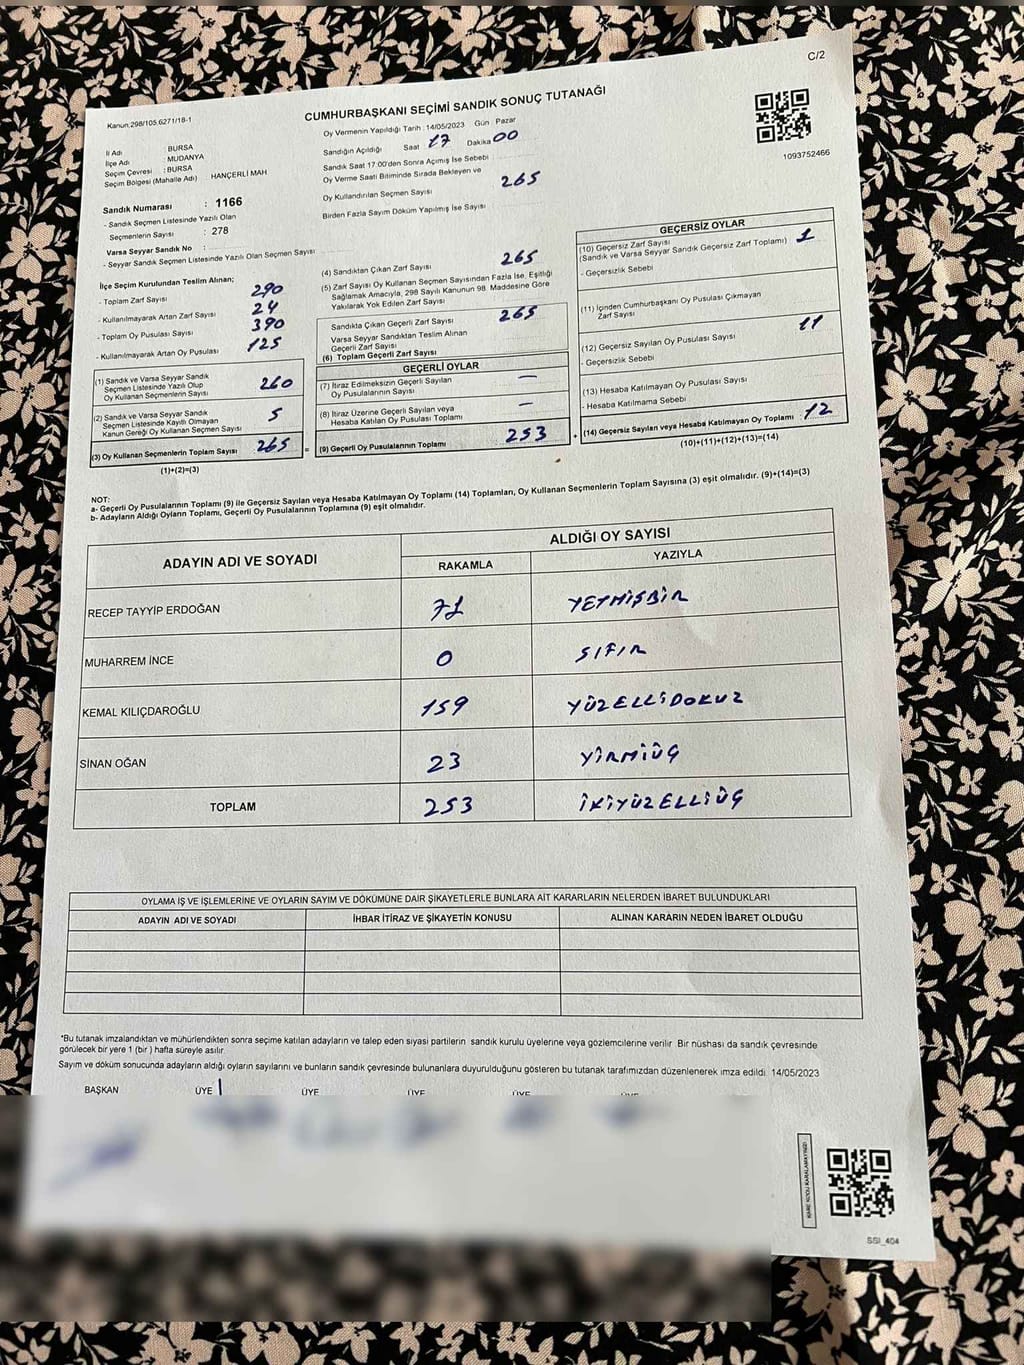 C/2
Kanun:298/105,6271/18-1
CUMHURBAŞKANI SEÇİMİ SANDIK SONUÇ TUTANAĞI
1093752466
İl Adı BURSA
İlçe Adı : MUDANYA
Seçim Çevresi : BURSA
Seçim Bölgesi (Mahalle Adı) HANÇERLİ MAH
Sandık Numarası : 1166
- Sandık Seçmen Listesinde Yazılı Olan
Seçmenlerin Sayısı : 278
Varsa Seyyar Sandık No :
- Seyyar Sandık Seçmen Listesinde Yazılı Olan Seçmen Sayısı
Oy Vermenin Yapıldığı Tarih : 14/05/2023 Gün : Pazar
Sandığın Açıldığı Saat 17 Dakika 00
Sandık Saat 17:00'den Sonra Açımış İse Sebebi
Oy Verme Saati Bitiminde Sırada Bekleyen ve
Oy Kullandırılan Seçmen Sayısı 265
Birden Fazla Sayım Döküm Yapılmış İse Sayısı
İlçe Seçim Kurulundan Teslim Alınan;
- Toplam Zarf Sayısı 290
- Kullanılmayarak Artan Zarf Sayısı 24
- Toplam Oy Pusulası Sayısı 390
- Kullanılmayarak Artan Oy Pusulası 125
(1) Sandık ve Varsa Seyyar Sandık
Seçmen Listesinde Yazılı Olup
Oy Kullanan Seçmenlerin Sayısı 260
(2) Sandık ve Varsa Seyyar Sandık
Seçmen Listesinde Kayıtlı Olmayan
Kanun Gereği Oy Kullanan Seçmen Sayısı 5
(3) Oy Kullanan Seçmenlerin Toplam Sayısı 265
(1)+(2)=(3)
(4) Sandıktan Çıkan Zarf Sayısı 265
(5) Zarf Sayısı Oy Kullanan Seçmen Sayısından Fazla İse, Eşitliği
Sağlamak Amacıyla, 298 Sayılı Kanunun 98. Maddesine Göre
Yakılarak Yok Edilen Zarf Sayısı
Sandıkta Çıkan Geçerli Zarf Sayısı 265
Varsa Seyyar Sandıktan Teslim Alınan
Geçerli Zarf Sayısı
(6) Toplam Geçerli Zarf Sayısı
GEÇERLİ OYLAR
(7) İtiraz Edilmeksizin Geçerli Sayılan
Oy Pusulalarının Sayısı —
(8) İtiraz Üzerine Geçerli Sayılan veya
Hesaba Katılan Oy Pusulası Toplamı —
= (9) Geçerli Oy Pusulalarının Toplamı 253 +
GEÇERSİZ OYLAR
(10) Geçersiz Zarf Sayısı
(Sandık ve Varsa Seyyar Sandık Geçersiz Zarf Toplamı) 1
- Geçersizlik Sebebi
(11) İçinden Cumhurbaşkanı Oy Pusulası Çıkmayan
Zarf Sayısı
(12) Geçersiz Sayılan Oy Pusulası Sayısı 11
- Geçersizlik Sebebi
(13) Hesaba Katılmayan Oy Pusulası Sayısı
- Hesaba Katılmama Sebebi
(14) Geçersiz Sayılan veya Hesaba Katılmayan Oy Toplamı 12
(10)+(11)+(12)+(13)=(14)
NOT:
a- Geçerli Oy Pusulalarının Toplamı (9) ile Geçersiz Sayılan veya Hesaba Katılmayan Oy Toplamı (14) Toplamları, Oy Kullanan Seçmenlerin Toplam Sayısına (3) eşit olmalıdır. (9)+(14)=(3)
b- Adayların Aldığı Oyların Toplamı, Geçerli Oy Pusulalarının Toplamına (9) eşit olmalıdır.
ADAYIN ADI VE SOYADI ALDIĞI OY SAYISI
RAKAMLA YAZIYLA
RECEP TAYYİP ERDOĞAN 71 YETMİŞBİR
MUHARREM İNCE 0 SIFIR
KEMAL KILIÇDAROĞLU 159 YÜZELLİDOKUZ
SİNAN OĞAN 23 YİRMİÜÇ
TOPLAM 253 İKİYÜZELLİÜÇ
OYLAMA İŞ VE İŞLEMLERİNE VE OYLARIN SAYIM VE DÖKÜMÜNE DAİR ŞİKAYETLERLE BUNLARA AİT KARARLARIN NELERDEN İBARET BULUNDUKLARI
ADAYIN ADI VE SOYADI İHBAR İTİRAZ VE ŞİKAYETİN KONUSU ALINAN KARARIN NEDEN İBARET OLDUĞU
*Bu tutanak imzalandıktan ve mühürlendikten sonra seçime katılan adayların ve talep eden siyasi partilerin sandık kurulu üyelerine veya gözlemcilerine verilir Bir nüshası da sandık çevresinde
görülecek bir yere 1 (bir ) hafta süreyle asılır.
Sayım ve döküm sonucunda adayların aldığı oyların sayılarını ve bunların sandık çevresinde bulunanlara duyurulduğunu gösteren bu tutanak tarafımızdan düzenlenerek imza edildi. 14/05/2023
BAŞKAN ÜYE ÜYE ÜYE ÜYE ÜYE
KARE KODU KARALAMAYINIZ!
SSI_404